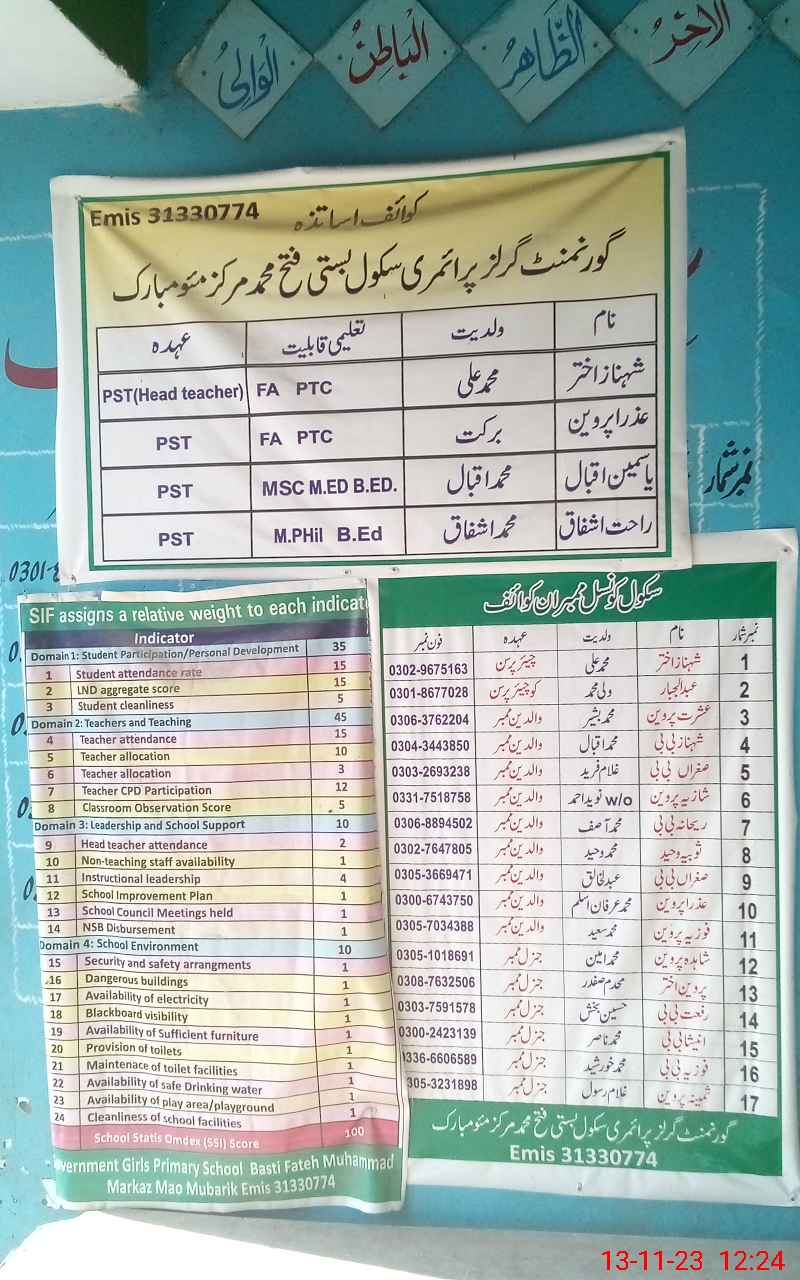 الوالی الباطن الظاهر الآخر
Emis 31330774 کوائف اساتذہ
گورنمنٹ گرلز پرائمری سکول بستی فتح محمد مرکز مئو مبارک
نام ولدیت تعلیمی قابلیت عہدہ
شہناز اختر محمد علی FA PTC PST(Head teacher)
عذرا پروین برکت FA PTC PST
یاسمین اقبال محمد اقبال MSC M.ED B.ED. PST
راحت اشفاق محمد اشفاق M.PHil B.Ed PST
نمبر شمار
0301-
SIF assigns a relative weight to each indicat
Indicator
Domain 1: Student Participation/Personal Development 35
1 Student attendance rate 15
2 LND aggregate score 15
3 Student cleanliness 5
Domain 2: Teachers and Teaching 45
4 Teacher attendance 15
5 Teacher allocation 10
6 Teacher allocation 3
7 Teacher CPD Participation 12
8 Classroom Observation Score 5
Domain 3: Leadership and School Support 10
9 Head teacher attendance 2
10 Non-teaching staff availability 1
11 Instructional leadership 4
12 School Improvement Plan 1
13 School Council Meetings held 1
14 NSB Disbursement 1
Domain 4: School Environment 10
15 Security and safety arrangments 1
16 Dangerous buildings 1
17 Availability of electricity 1
18 Blackboard visibility 1
19 Availability of Sufficient furniture 1
20 Provision of toilets 1
21 Maintenace of toilet facilities 1
22 Availability of safe Drinking water 1
23 Availability of play area/playground 1
24 Cleanliness of school facilities 1
School Statis Omdex (SSI) Score 100
overnment Girls Primary School Basti Fateh Muhammad
Markaz Mao Mubarik Emis 31330774
سکول کونسل ممبران کوائف
نمبر شمار نام ولدیت عہدہ فون نمبر
1 شہناز اختر محمد علی چیئر پرسن 0302-9675163
2 عبدالجبار ولی محمد کو چیئر پرسن 0301-8677028
3 عشرت پروین محمد بشیر والدین ممبر 0306-3762204
4 شہناز بی بی محمد اقبال والدین ممبر 0304-3443850
5 صغراں بی بی غلام فرید والدین ممبر 0303-2693238
6 شازیہ پروین w/o نوید احمد والدین ممبر 0331-7518758
7 ریحانہ بی بی محمد آصف والدین ممبر 0306-8894502
8 ثوبیہ وحید محمد وحید والدین ممبر 0302-7647805
9 صغراں بی بی عبدالخالق والدین ممبر 0305-3669471
10 عذرا پروین محمد عرفان اسلم والدین ممبر 0300-6743750
11 فوزیہ پروین محمد سعید والدین ممبر 0305-7034388
12 شاہدہ پروین محمد امین جنرل ممبر 0305-1018691
13 پروین اختر محمد صفدر جنرل ممبر 0308-7632506
14 رفعت بی بی حسین بخش جنرل ممبر 0303-7591578
15 انیشا بی بی محمد ناصر جنرل ممبر 0300-2423139
16 فوزیہ بی بی محمد خورشید جنرل ممبر 0336-6606589
17 ثمینہ پروین غلام رسول جنرل ممبر 0305-3231898
گورنمنٹ گرلز پرائمری سکول بستی فتح محمد مرکز مئو مبارک
Emis 31330774
13-11-23 12:24